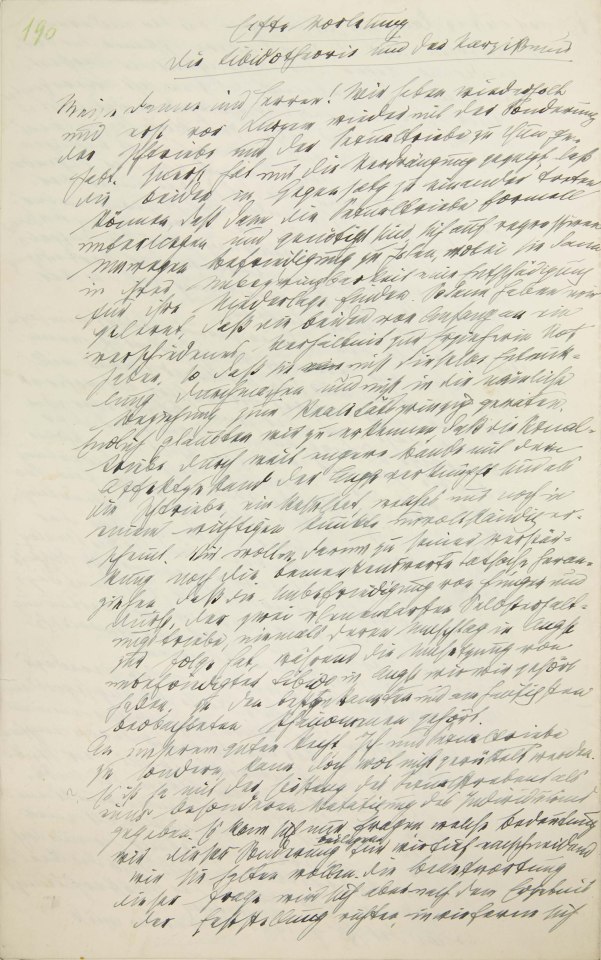 190
Die Libidotheorie und der Narzißmus
Meine Damen und Herren! Wir haben wiederholt
und erst vor kurzem wieder mit der Sonderung
der Ichtriebe und der Sexualtriebe zu tun ge-
habt. Zuerst hat uns die Verdrängung gezeigt, daß
die beiden in Gegensatz zu einander treten
können, daß dann die Sexualtriebe formell
unterliegen und genötigt sind, sich auf regressiven
Umwegen Befriedigung zu holen, wobei sie dann
in ihrer Unbezwingbarkeit eine Entschädigung
für ihre Niederlage finden. Sodann haben wir
gelernt, daß die beiden von Anfang an ein
verschiedenes Verhältnis zur Erzieherin Not
haben, so daß sie nicht dieselbe Entwick-
lung durchmachen und nicht in die nämliche
Beziehung zum Realitätsprinzip geraten.
Endlich glaubten wir zu erkennen, daß die Sexual-
triebe durch weit engere Bande mit dem
Affektzustand der Angst verknüpft sind als
die Ichtriebe, ein Resultat, welches nur noch in
einem wichtigen Punkte unvollständig er-
scheint. Wir wollen darum zu seiner Verstär-
kung noch die bemerkenswerte Tatsache heran-
ziehen, daß die Unbefriedigung von Hunger und
Durst, der zwei elementarsten Selbsterhalt-
ungstriebe, niemals deren Umschlag in Angst
zur Folge hat, während die Umsetzung von
unbefriedigter Libido in Angst, wie wir gehört
haben, zu den bestbekannten und am häufigsten
beobachteten Phänomenen gehört.
An unserem guten Recht, Ich und Sexualtriebe
zu sondern, kann doch wol nicht gerüttelt werden.
Es ist ja mit der Existenz des Sexualstrebens als
einer besonderen Betätigung des Individuums
gegeben. Es kann sich nur fragen, welche Bedeutung
wir dieser Sonderung beilegen, für wie tief einschneidend
wir sie halten wollen. Die Beantwortung
dieser Frage wird sich aber nach dem Ergebnis
der Feststellung richten, inwiefern sich